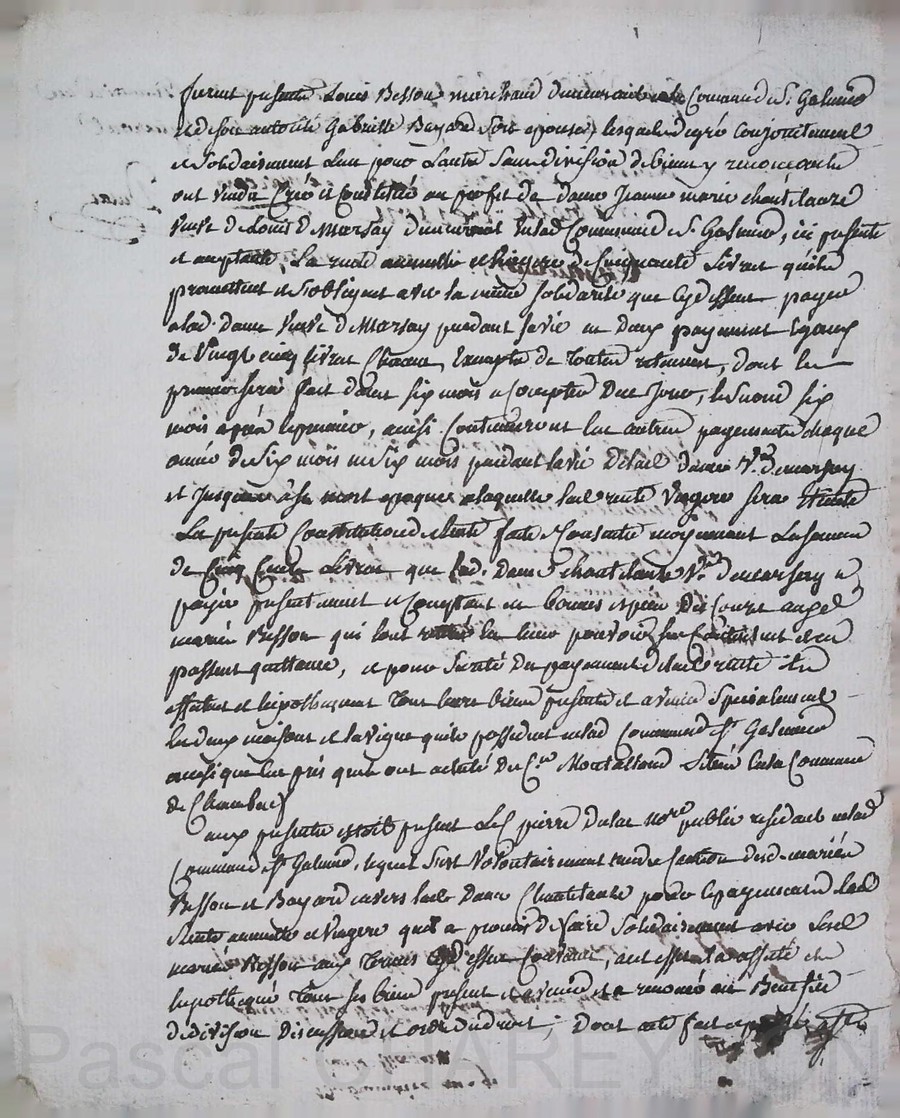 furent présents Louis Besson marchand demeurant Commune de St Galmier
et de son autorité Gabrielle Bayard son épouse, lesquels de gré conjointement
et solidairement l'un pour l'autre sans division de biens y renonceants
ont vendu créé et constitué au profit de dame Jeanne marie chantelauze
veuve de Louis DeMarsay demeurant en lad Commune de St Galmier, ici présente
et acceptante, La rente annuelle et viagere de Cinquante Livres qu'ils
promettent et s'obligent avec la même solidarité que cydessus payer
a lad. Dame veuve DeMarsay pendant sa vie en Deux payements Egaux
de Vingt cinq Livres Chacun, Exempts de toutes retenues, dont le
premier sera fait dans six mois a Compter De ce Jour, le second six
mois après le premier, ainsi Continueront les autres payements chaque
année de Six mois en Six mois pendant la vie De lad Dame Ve. demarsay
et Jusques à sa mort epoque a laquelle lad rente Viagere sera Eteinte
La présente Constitution de Rente faite et Consentie moyennant La somme
de Cinq Cents Livres que lad. Dame chantelauze Ve. demarsay a
payée présentement et comptant en bonnes espèces De Cours auxd
mariés Besson qui l'ont retirée
passent quittance, et pour Sureté Du payement de lad rente ils
affectent et hypothequent Tous leurs biens présents et avenir Specialement
les deux maisons et la vigne qu'ils possèdent en lad Commune St Galmier
ainsi que les prés qu'ils ont acheté Du Cen Montaland Situés en la Commune
de Chambœuf
aux présentes estoit présent Le Cn pierre Dulac nore public résidant en lad
Commune St Galmier, lequel S'est Volontairement rendu Caution desd. mariés
Besson et Bayard envers lad Dame Chantelauze pour le payement de lad
Rente annuelle et Viagere qu'il a promis de faire Solidairement avec lesd
mariés Besson aux Termes Cydessus Convenus, aux effets a affecté et
hypothequé Tous ses biens présents et avenir et a renoncé au Benefice
de division Discussion et ordre de droit; Dont acte fait
Pascal CHAREYRON